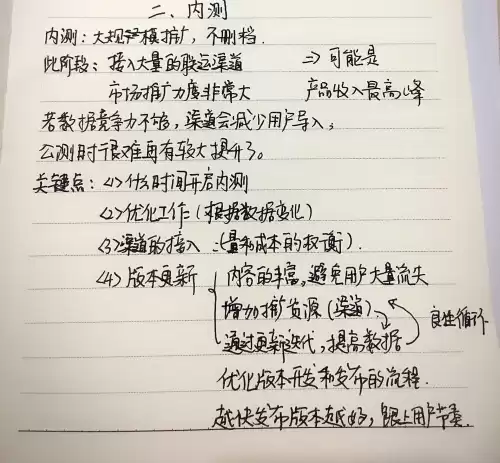 二、内测
内测：大规模推广，不删档.
此阶段：接入大量的联运渠道 => 可能是
市场推广力度非常大 产品收入最高峰
若数据竞争力不够，渠道会减少用户导入，
公测时很难再有较大提升了。
关键点：<1>什么时间开启内测
<2>优化工作(根据数据变化)
<3>渠道的接入：(量和成本的权衡).
<4>版本更新 内容的丰富，避免用户大量流失
增加推广资源(渠道)
通过更新迭代，提高数据 良性循环
优化版本开发和发布的流程.
越快发布版本越好，跟上用户节奏.